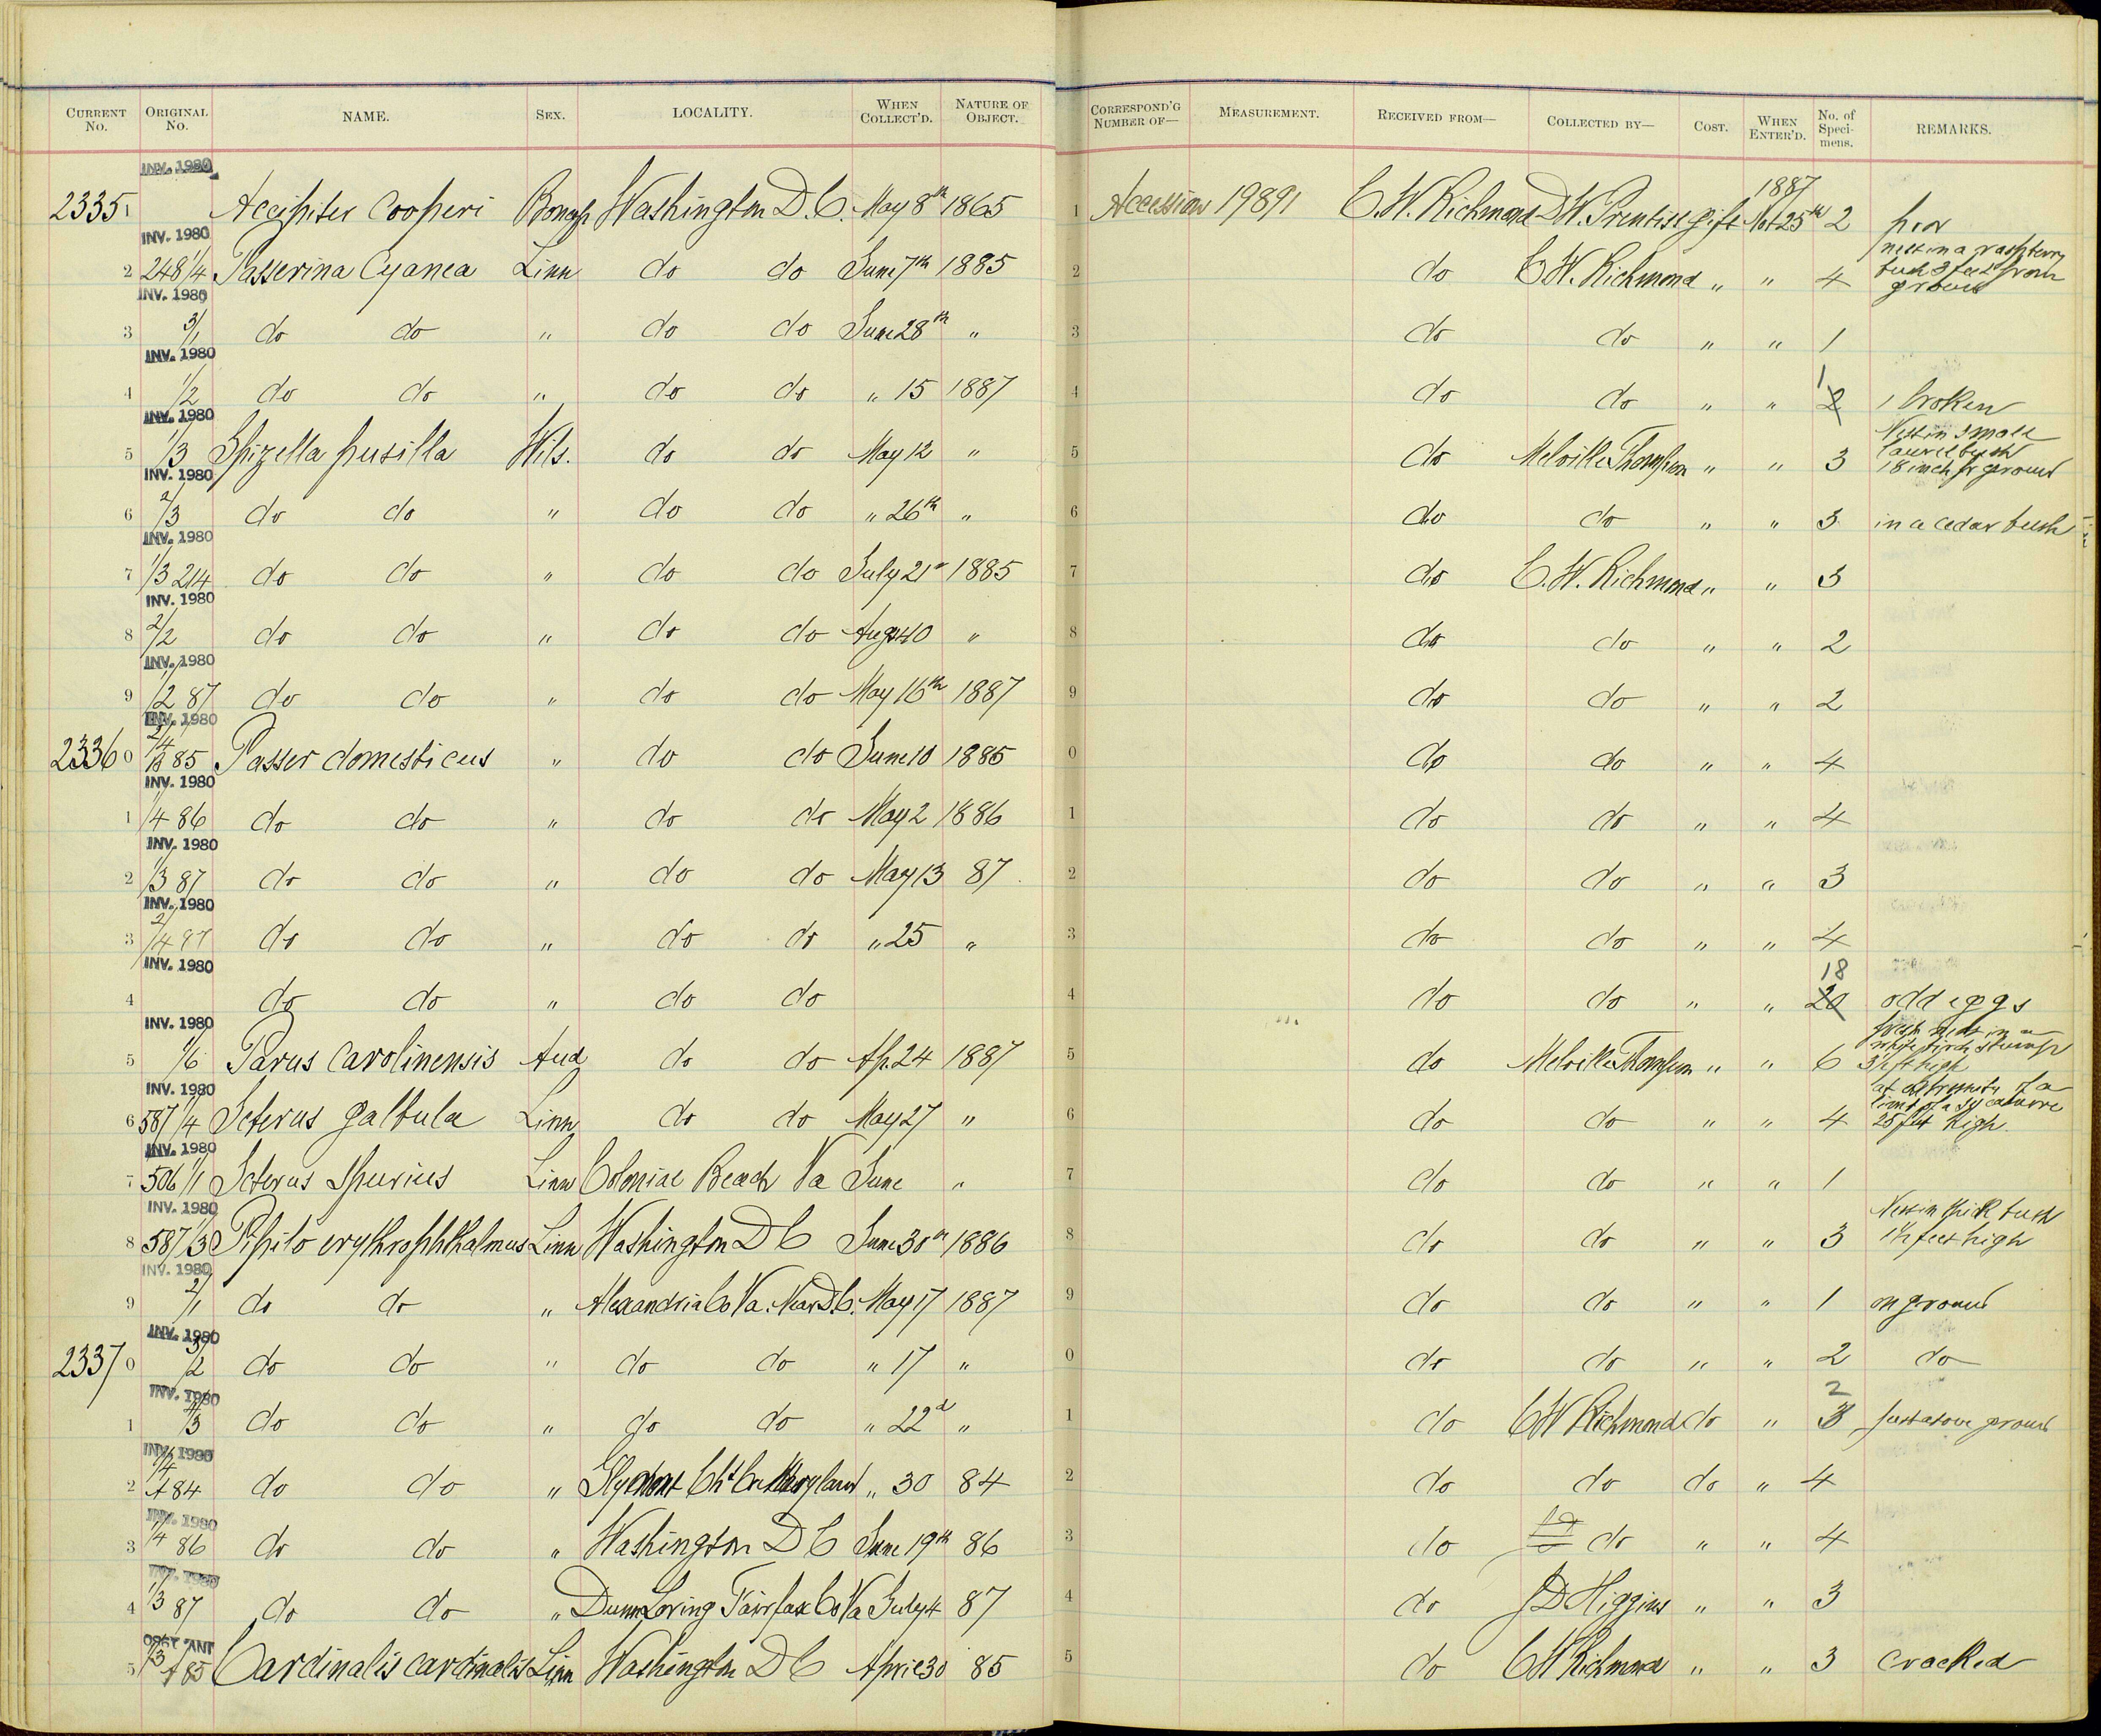 CURRENT No. ORIGINAL No. NAME. SEX. LOCALITY. WHEN COLLECT'D. NATURE OF OBJECT. CORRESPOND'G NUMBER OF— MEASUREMENT. RECEIVED FROM— COLLECTED BY— COST. WHEN ENTER'D. No. of Speci-mens. REMARKS.
INV. 1980
2335 1 Accipiter Cooperi Bonap Washington D.C. May 8th 1865 1 Accession 19891 C.W. Richmond D W. Prentiss gift 1887 25th 2
INV. 1980
2 248 1/4 Passerina Cyanea Linn do do June 7th 1885 2 do C.W. Richmond " " 4 nest in a raspberry bush 3 feet from ground
INV. 1980
3 3/1 do do " do do June 28th " 3 do do " " 1
INV. 1980
4 1/2 do do " do do " 15 1887 4 do do " " 2 1 1 broken
INV. 1980
5 1/3 Spizella pusilla Wils. do do May 12 " 5 do Melville Thompson " " 3 Nest in small laurel bush 18 inch fr ground
INV. 1980
6 2/3 do do " do do " 26th " 6 do do " " 3 in a cedar bush
INV. 1980
7 1/3 214 do do " do do July 21 1885 7 do C.W. Richmond " " 3
INV. 1980
8 2/2 do do " do do " 8 do do " " 2
INV. 1980
9 1/2 87 do do " do do May 16th 1887 9 do do " " 2
INV. 1980
2336 0 85 Passer domesticus " do do June 10 1885 0 do do " " 4
INV. 1980
1 1/4 86 do do " do do May 2 1886 1 do do " " 4
INV. 1980
2 1/3 87 do do " do do May 13 87 2 do do " " 3
INV. 1980
3 2/4 87 do do " do do " 25 " 3 do do " " 4
INV. 1980
4 do do " do do 4 do do " " 20 18 odd eggs
INV. 1980
5 1/6 Parus carolinensis Aud do do Ap. 24 1887 5 do Melville Thompson " " 6 fresh nest in a white birch stump 3½ ft high
INV. 1980
6 587 1/4 Icterus galbula Linn do do May 27 " 6 do do " " 4 at extremity of a limb of a sycamore 25 feet high
INV. 1980
7 506 1/1 Icterus spurius Linn Colonial Beach Va June " 7 do do " " 1
INV. 1980
8 587 1/3 Pipilo erythrophthalmus Linn Washington D C June 30th 1886 8 do do " " 3 Nest in thick bush 1½ feet high
INV. 1980
9 2/1 do do " Alexandria Co Va. Near D.C. May 17 1887 9 do do " " 1 on ground
INV. 1980
2337 0 3/2 do do " do do " 17 " 0 do do " " 2 do
INV. 1980
1 4/3 do do " do do " 22d " 1 do C W Richmond do " 3 2 just above ground
INV. 1980
2 1/4 84 do do " Glymont Maryland " 30 84 2 do do do " 4
INV. 1980
3 1/4 86 do do " Washington D C June 19th 86 3 do do " " 4
INV. 1980
4 1/3 87 do do " Dunn Loring Fairfax Co Va July 4 87 4 do J D Higgins " " 3
INV. 1980
5 1/3 85 Cardinalis cardinalis Linn Washington D C April 30 85 5 do C W Richmond " " 3 cracked